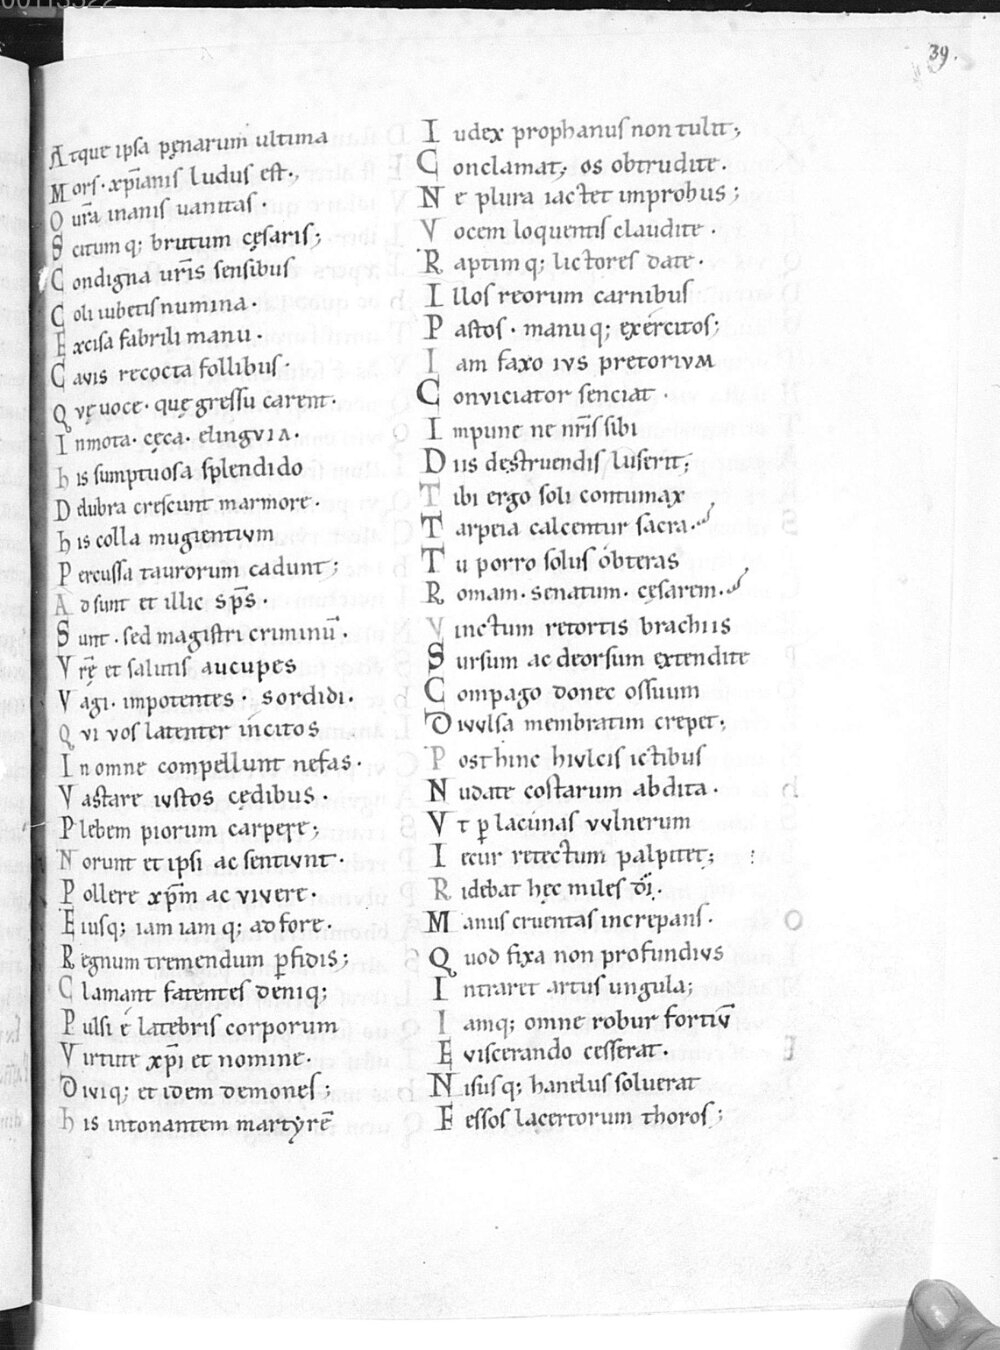 00113322
39.
Atque ipsa pęnarum ultima
Mors· xp̅ianis ludus est·,
O ur̅a inanis uanitas·
Scitumq; brutum cęsaris;
Condigna ur̅is sensibus
Coli iubetis numina·
Excisa fabrili manu·
Cavis recocta follibus·
Qvę uoce· quę gressu carent·
Inmota· cęca· elingvia·
his sumptuosa splendido
Delubra crescunt marmore·
his colla mugientivm
Percussa taurorum cadunt;
Adsunt et illic sp̅s·
Sunt· sed magistri criminu̅·
Vr̅ę et salutis aucupes
Vagi· impotentes· sordidi·
Qvi vos latenter incitos
In omne compellunt nefas·
Vastare ivstos cędibus·
Plebem piorum carpere;
Norunt et ipsi ac sentivnt·
Pollere xp̅m ac vivere·
Eiusq; iam iamq; adfore·
Regnum tremendum p̱fidis;
Clamant fatentes deniq;
Pulsi é latebris corporum
Virtute xp̅i et nomine·
Divīq; et idem demones;
his intonantem martyre̅
Iudex prophanus non tulit;
Conclamat; os obtrudite·
Ne plura iactet improbus;
Vocem loquentis claudite·
Raptimq; lictores date·
Illos reorum carnibus
Pastos· manuq; exercitos;
Iam faxo ivs pretorivm
Conviciator senciat·
Impune ne nr̅is sibi
Diis dęstruendis luserit;
Tibi ergo soli contumax
Tarpeia calcentur sacra·
Tu porro solus óbteras
Romam· senatum· cęsarem·
Vinctum retortis brachiis
Sursum ac deorsum extendite
Compago donec ossuum
Divvlsa membratim crepet;
Post hinc hivlcis ictibus
Nudate costarum abdita·
Vt p̱ lacunas vvlnerum
Iecur retectum palpitet;
Ridebat hęc miles di̅·
Manus crventas increpans·
Quod fixa non profundivs
Intraret artus ungula;
Iamq; omne robur fortiv̅
Eviscerando cesserat·
Nisusq; hanelus soluerat
Fessos lacertorum thoros;